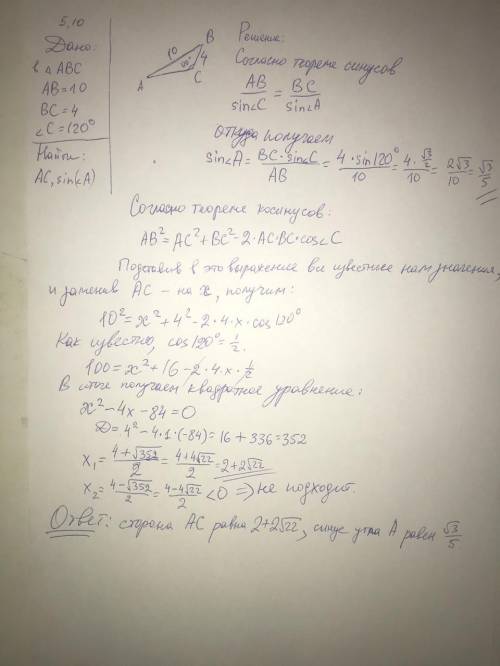 5,10
Дано:
в △ABC
AB=10
BC=4
∠C=120°
Найти:
AC, sin(∠A)
B
10
4
120°
A
C
Решение:
Согласно теореме синусов
AB/sin∠C = BC/sin∠A
Откуда получаем
sin∠A = BC·sin∠C/AB = 4·sin120°/10 = 4·√3/2/10 = 2√3/10 = √3/5
Согласно теореме косинусов:
AB²=AC²+BC²-2·AC·BC·cos∠C
Подставив в это выражение все известные нам значения,
и заменив AC – на x, получим:
10²=x²+4²-2·4·x·cos120°
Как известно, cos120°=1/2.
100=x²+16-2·4·x·1/2
В итоге получаем квадратное уравнение:
x²-4x-84=0
D=4²-4·1·(-84)=16+336=352
x₁=4+√352/2=4+4√22/2=2+2√22
x₂=4-√352/2=4-4√22/2<0 ⇒ не подходит.
Ответ: сторона AC равна 2+2√22, синус угла A равен √3/5